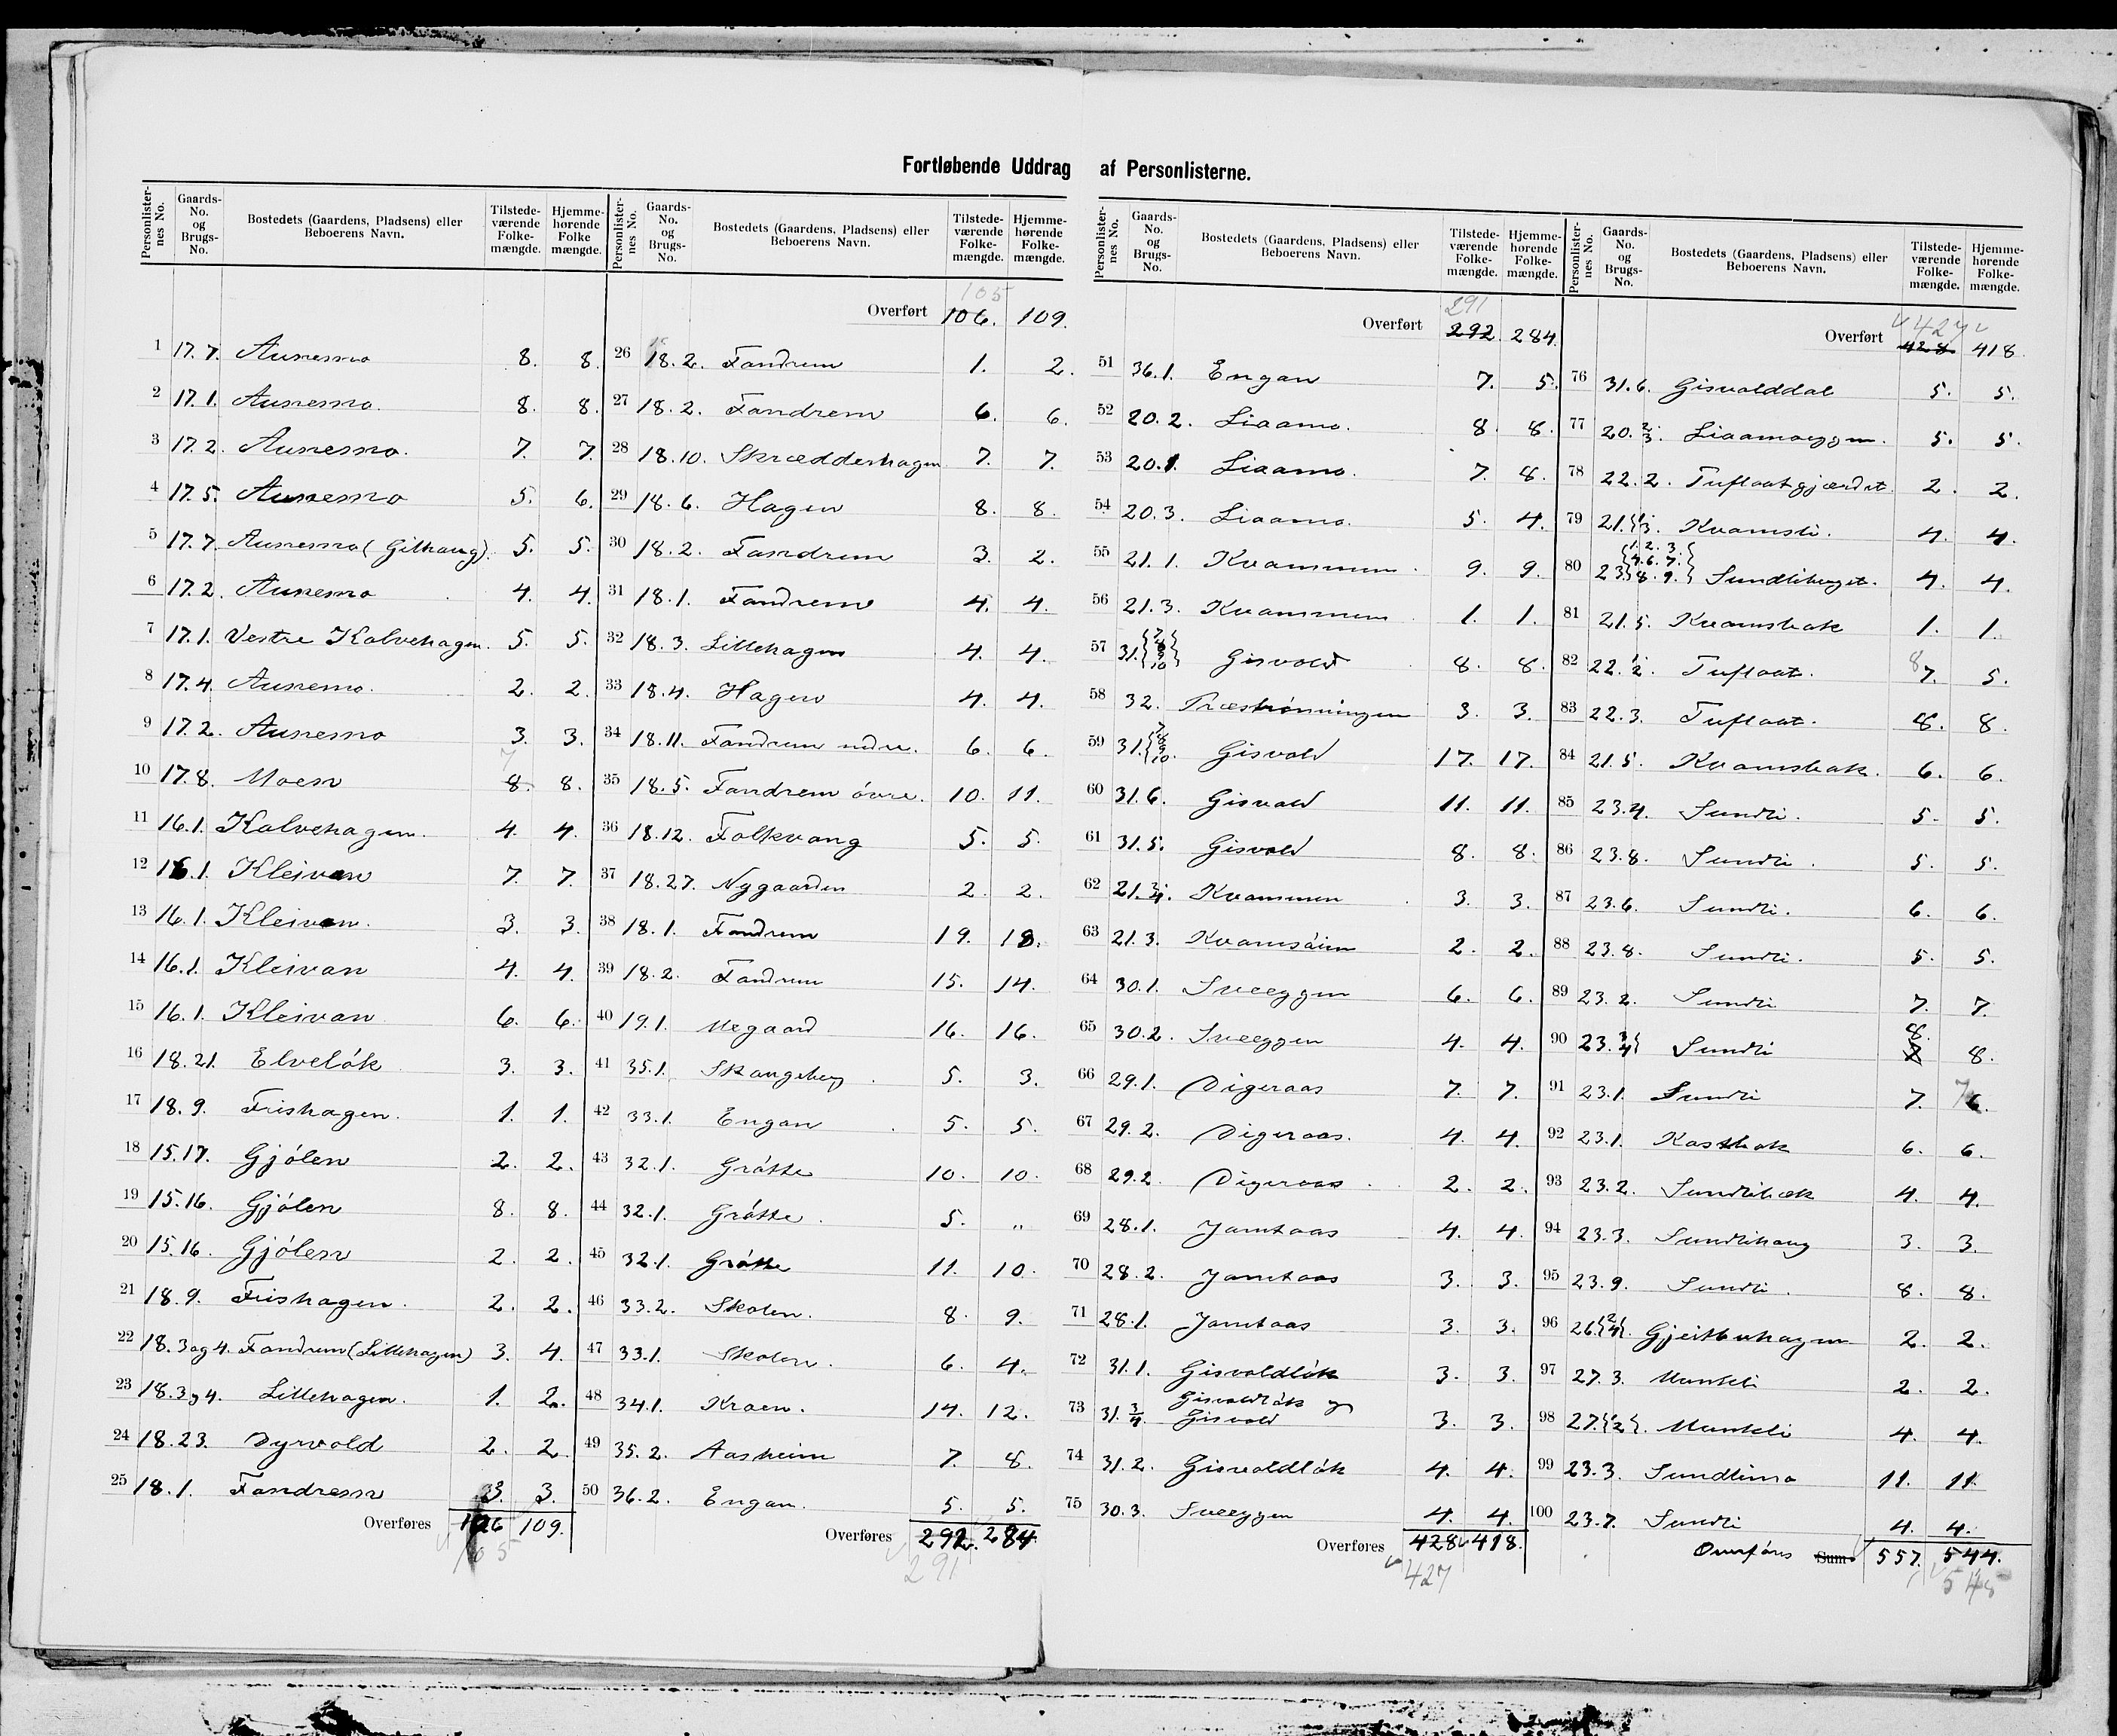 Fortløbende Uddrag af Personlisterne.
Personlister-nes No. Gaards-No. og Brugs-No. Bostedets (Gaardens, Pladsens) eller Beboerens Navn. Tilstede-værende Folke-mængde. Hjemme-hørende Folke mængde.
1 17.7. Aunemo 8. 8.
2 17.1. Aunemo. 8. 8.
3 17.2. Aunemo. 7. 7.
4 17.5. Aunemo 5. 6.
5 17.7. Aunemo (Gilhaug). 5. 5.
6 17.2. Aunemo 4. 4.
7 17.1. Vestre Kalvehagen. 5. 5.
8 17.4. Aunemo. 2. 2.
9 17.2. Aunemo 3. 3.
10 17.8. Moen 7 8. 8.
11 16.1. Kalvehagen. 4. 4.
12 16.1. Kleivan 7. 7.
13 16.1. Kleivan. 3. 3.
14 16.1. Kleivan 4. 4.
15 16.1. Kleivan 6. 6.
16 18.21. Elveløk 3. 3.
17 18.9. Frishagen. 1. 1.
18 15.17. Gjølen 2. 2.
19 15.16. Gjølen 8. 8.
20 15.16. Gjølen 2. 2.
21 18.9. Frishagen. 2. 2.
22 18.3 og 4. Fandrem (Lillehagen) 3. 4.
23 18.3 og 4. Lillehagen. 1. 2.
24 18.23. Dyrvold 2. 2.
25 18.1. Fandrem 3. 3.
Overføres 106 109.
105
Personlister-nes No. Gaards-No. og Brugs-No. Bostedets (Gaardens, Pladsens) eller Beboerens Navn. Tilstede-værende Folke-mængde. Hjemme-hørende Folke-mængde.
105
Overført 106. 109.
26 18.2. Fandrem 1. 2.
27 18.2. Fandrem 6. 6.
28 18.10. Skrædderhagen 7. 7.
29 18.6. Hagen 8. 8.
30 18.2. Fandrem 3. 2.
31 18.1. Fandrem 4. 4.
32 18.3. Lillehagen 4. 4.
33 18.4. Hagen 4. 4.
34 18.11. Fandrem ndre. 6. 6.
35 18.5. Fandrem øvre. 10. 11.
36 18.12. Folkvang 5. 5.
37 18.27. Nygaarden 2. 2.
38 18.1. Fandrem 19. 18.
39 18.2. Fandrem 15. 14.
40 19.1. Megaard 16. 16.
41 35.1. Skaugeberg 5. 3.
42 33.1. Engan 5. 5.
43 32.1. Grøtte 10. 10.
44 32.1. Grøtte. 5. „
45 32.1. Grøtte 11. 10.
46 33.2. Skolen. 8. 9.
47 33.1. Skolen. 6. 4.
48 34.1. Kroen. 14. 12.
49 35.2. Aasheim 7. 8.
50 36.2. Engan. 5. 5.
Overføres 292. 284.
291
Personlister-nes No. Gaards-No. og Brugs-No. Bostedets (Gaardens, Pladsens) eller Beboerens Navn. Tilstede-værende Folke-mængde. Hjemme-hørende Folke-mængde.
291
Overført 292. 284.
51 36.1. Engan 7. 5.
52 20.2. Liaamo. 8. 8.
53 20.1. Liaamo. 7. 8.
54 20.3. Liaamo. 5. 4.
55 21.1. Kvammen. 9. 9.
56 21.3. Kvammen 1. 1.
57 31. Gisvold 8. 8.
58 32. Præstrønningen 3. 3.
59 31. Gisvold 17. 17.
60 31.6. Gisvold 11. 11.
61 31.5. Gisvold 8. 8.
62 21.3/4. Kvammen 3. 3.
63 21.3. Kvamsøien 2. 2.
64 30.1. Sveeggen 6. 6.
65 30.2. Sveeggen 4. 4.
66 29.1. Digeraas 7. 7.
67 29.2. Digeraas. 4. 4.
68 29.2. Digeraas. 2. 2.
69 28.1. Jamtaas 4. 4.
70 28.2. Jamtaas 3. 3.
71 28.1. Jamtaas 3. 3.
72 31.1. Gisvoldløk 3. 3.
73 31.3/4. Gisvoldløk og Gisvold 3. 3.
74 31.2. Gisvoldløk 4. 4.
75 30.3. Sveeggen 4. 4.
Overføres 428. 418.
427
Personlister-nes No. Gaards-No. og Brugs-No. Bostedets (Gaardens, Pladsens) eller Beboerens Navn. Tilstede-værende Folke-mængde. Hjemme-hørende Folke-mængde.
427
Overført 428 418.
76 31.6. Gisvolddal 5. 5.
77 20.2/3. Liaamoeggen. 5. 5.
78 22.2. Tufloatgjærdet. 2. 2.
79 21.1/3. Kvamsli. 4. 4.
80 23.{1.2.3. 4.6.7. 8.9.} Sundliberget. 4. 4.
81 21.5. Kvamsbak 1. 1.
82 22.1/2. Tufloat. 8 7. 5.
83 22.3. Tufloat. 8. 8.
84 21.5. Kvamsbak. 6. 6.
85 23.4. Sundli. 5. 5.
86 23.8. Sundli. 5. 5.
87 23.6. Sundli. 6. 6.
88 23.8. Sundli. 5. 5.
89 23.2. Sundli 7. 7.
90 23.3/4 Sundli 8. 8.
91 23.1. Sundli 7. 7 6.
92 23.1. Kastbak 6. 6.
93 23.2. Sundlibæk 4. 4.
94 23.3. Sundlihaug 3. 3.
95 23.9. Sundli. 8. 8.
96 26.{2/4}. Gjeitbuhagen 2. 2.
97 27.3. Mankli 2. 2.
98 27.{1/2}. Mankli 4. 4.
99 23.3. Sundlimo 11. 11.
100 23.7. Sundli 4. 4.
Overføres Sum 557. 544.
545